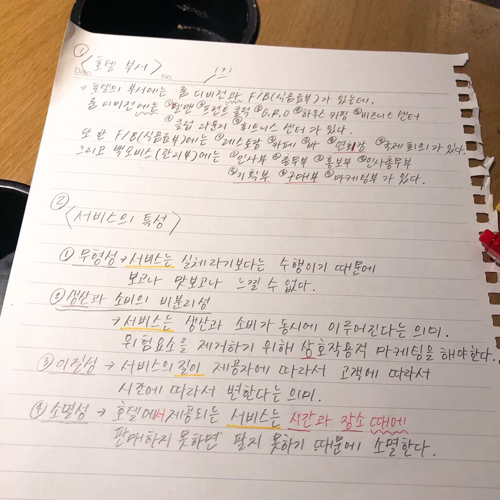 ① <호텔 부서>
Date. No. (1)
→ 호텔의 부서에는 룸 디비전과 F/B(식음료부)가 있는데,
룸 디비전에는 ①벨맨 ②프런트 클럭 ③G.R.O ④하우스 키핑 ⑤비즈니스 센터
⑥클럽 라운지 ⑦휘트니스 센터가 있다.
또한 F/B(식음료부)에는 ①레스토랑 ②카페 ③바 ④연회장 ⑤국제 회의가 있다.
그리고 백오피스(관리부)에는 ①인사부 ②총무부 ③홍보부 ④인사총무부
⑤기획부 ⑥구매부 ⑦마케팅부가 있다.
② <서비스의 특성>
① 무형성 → 서비스는 실체라기보다는 수행이기 때문에
보고나 맛보고나 느낄 수 없다.
② 생산과 소비의 비분리성
→ 서비스는 생산과 소비가 동시에 이루어진다는 의미.
위험요소를 제거하기 위해 상호작용적 마케팅을 해야한다.
③ 이질성 → 서비스의 질이 제공자에 따라서 고객에 따라서
시간에 따라서 변한다는 의미.
④ 소멸성 → 호텔에서 제공되는 서비스는 시간과 장소 때에
판매하지 못하면 팔지 못하기 때문에 소멸한다.